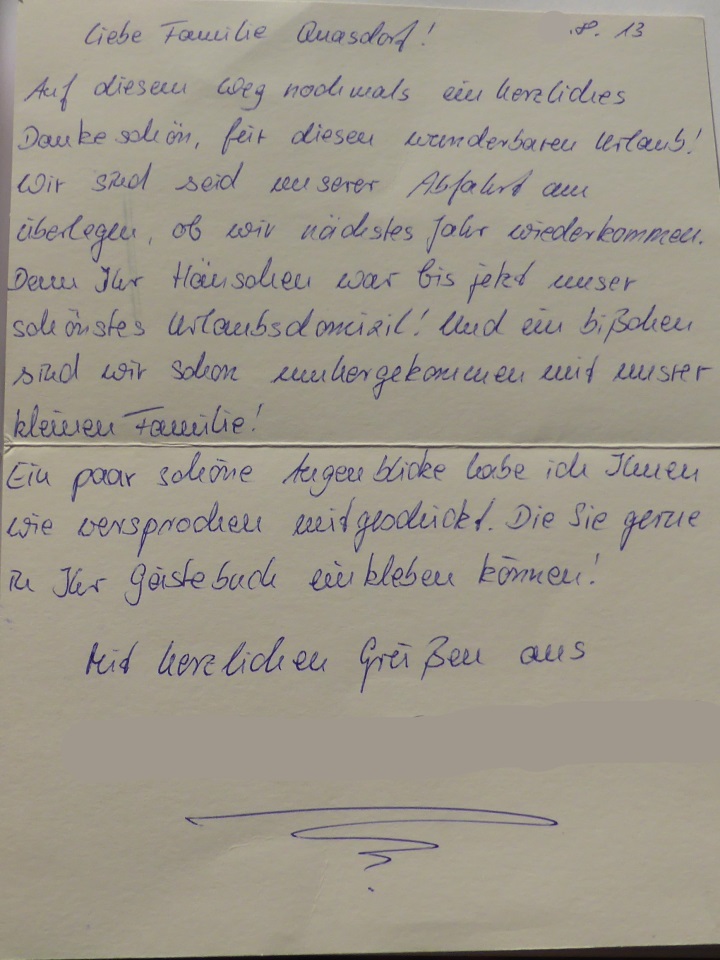 .8. 13
Liebe Familie Quasdorf!
Auf diesem Weg nochmals ein herzliches
Dankeschön, für diesen wunderbaren Urlaub!
Wir sind seid unserer Abfahrt am
überlegen, ob wir nächstes Jahr wiederkommen.
Denn Ihr Häuschen war bis jetzt unser
schönstes Urlaubsdomizil! Und ein bißchen
sind wir schon umhergekommen mit unster
kleinen Familie!
Ein paar schöne Augenblicke habe ich Ihnen
wie versprochen mitgeschickt. Die Sie gerne
in Ihr Gästebuch einkleben können!
Mit herzlichen Grüßen aus